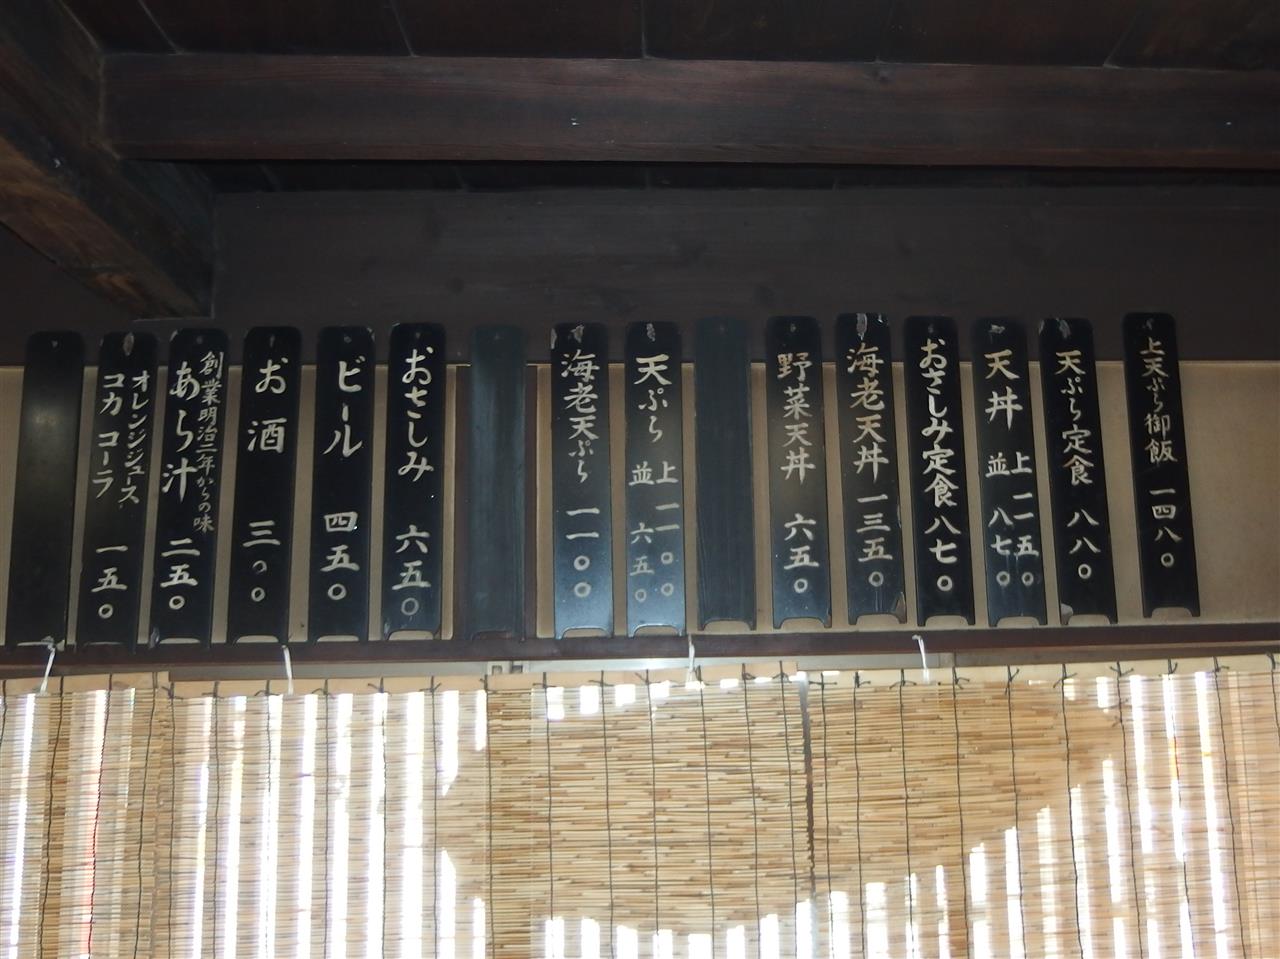 上天ぷら御飯 一四八〇
天ぷら定食 八八〇
天丼 上 一一五〇
並 八七〇
おさしみ定食 八七〇
海老天丼 一三五〇
野菜天丼 六五〇
天ぷら 上 一一〇〇
並 六五〇
海老天ぷら 一一〇〇
おさしみ 六五〇
ビール 四五〇
お酒 三〇〇
創業明治二年からの味
あら汁 二五〇
オレンジジュース
コカコーラ 一五〇